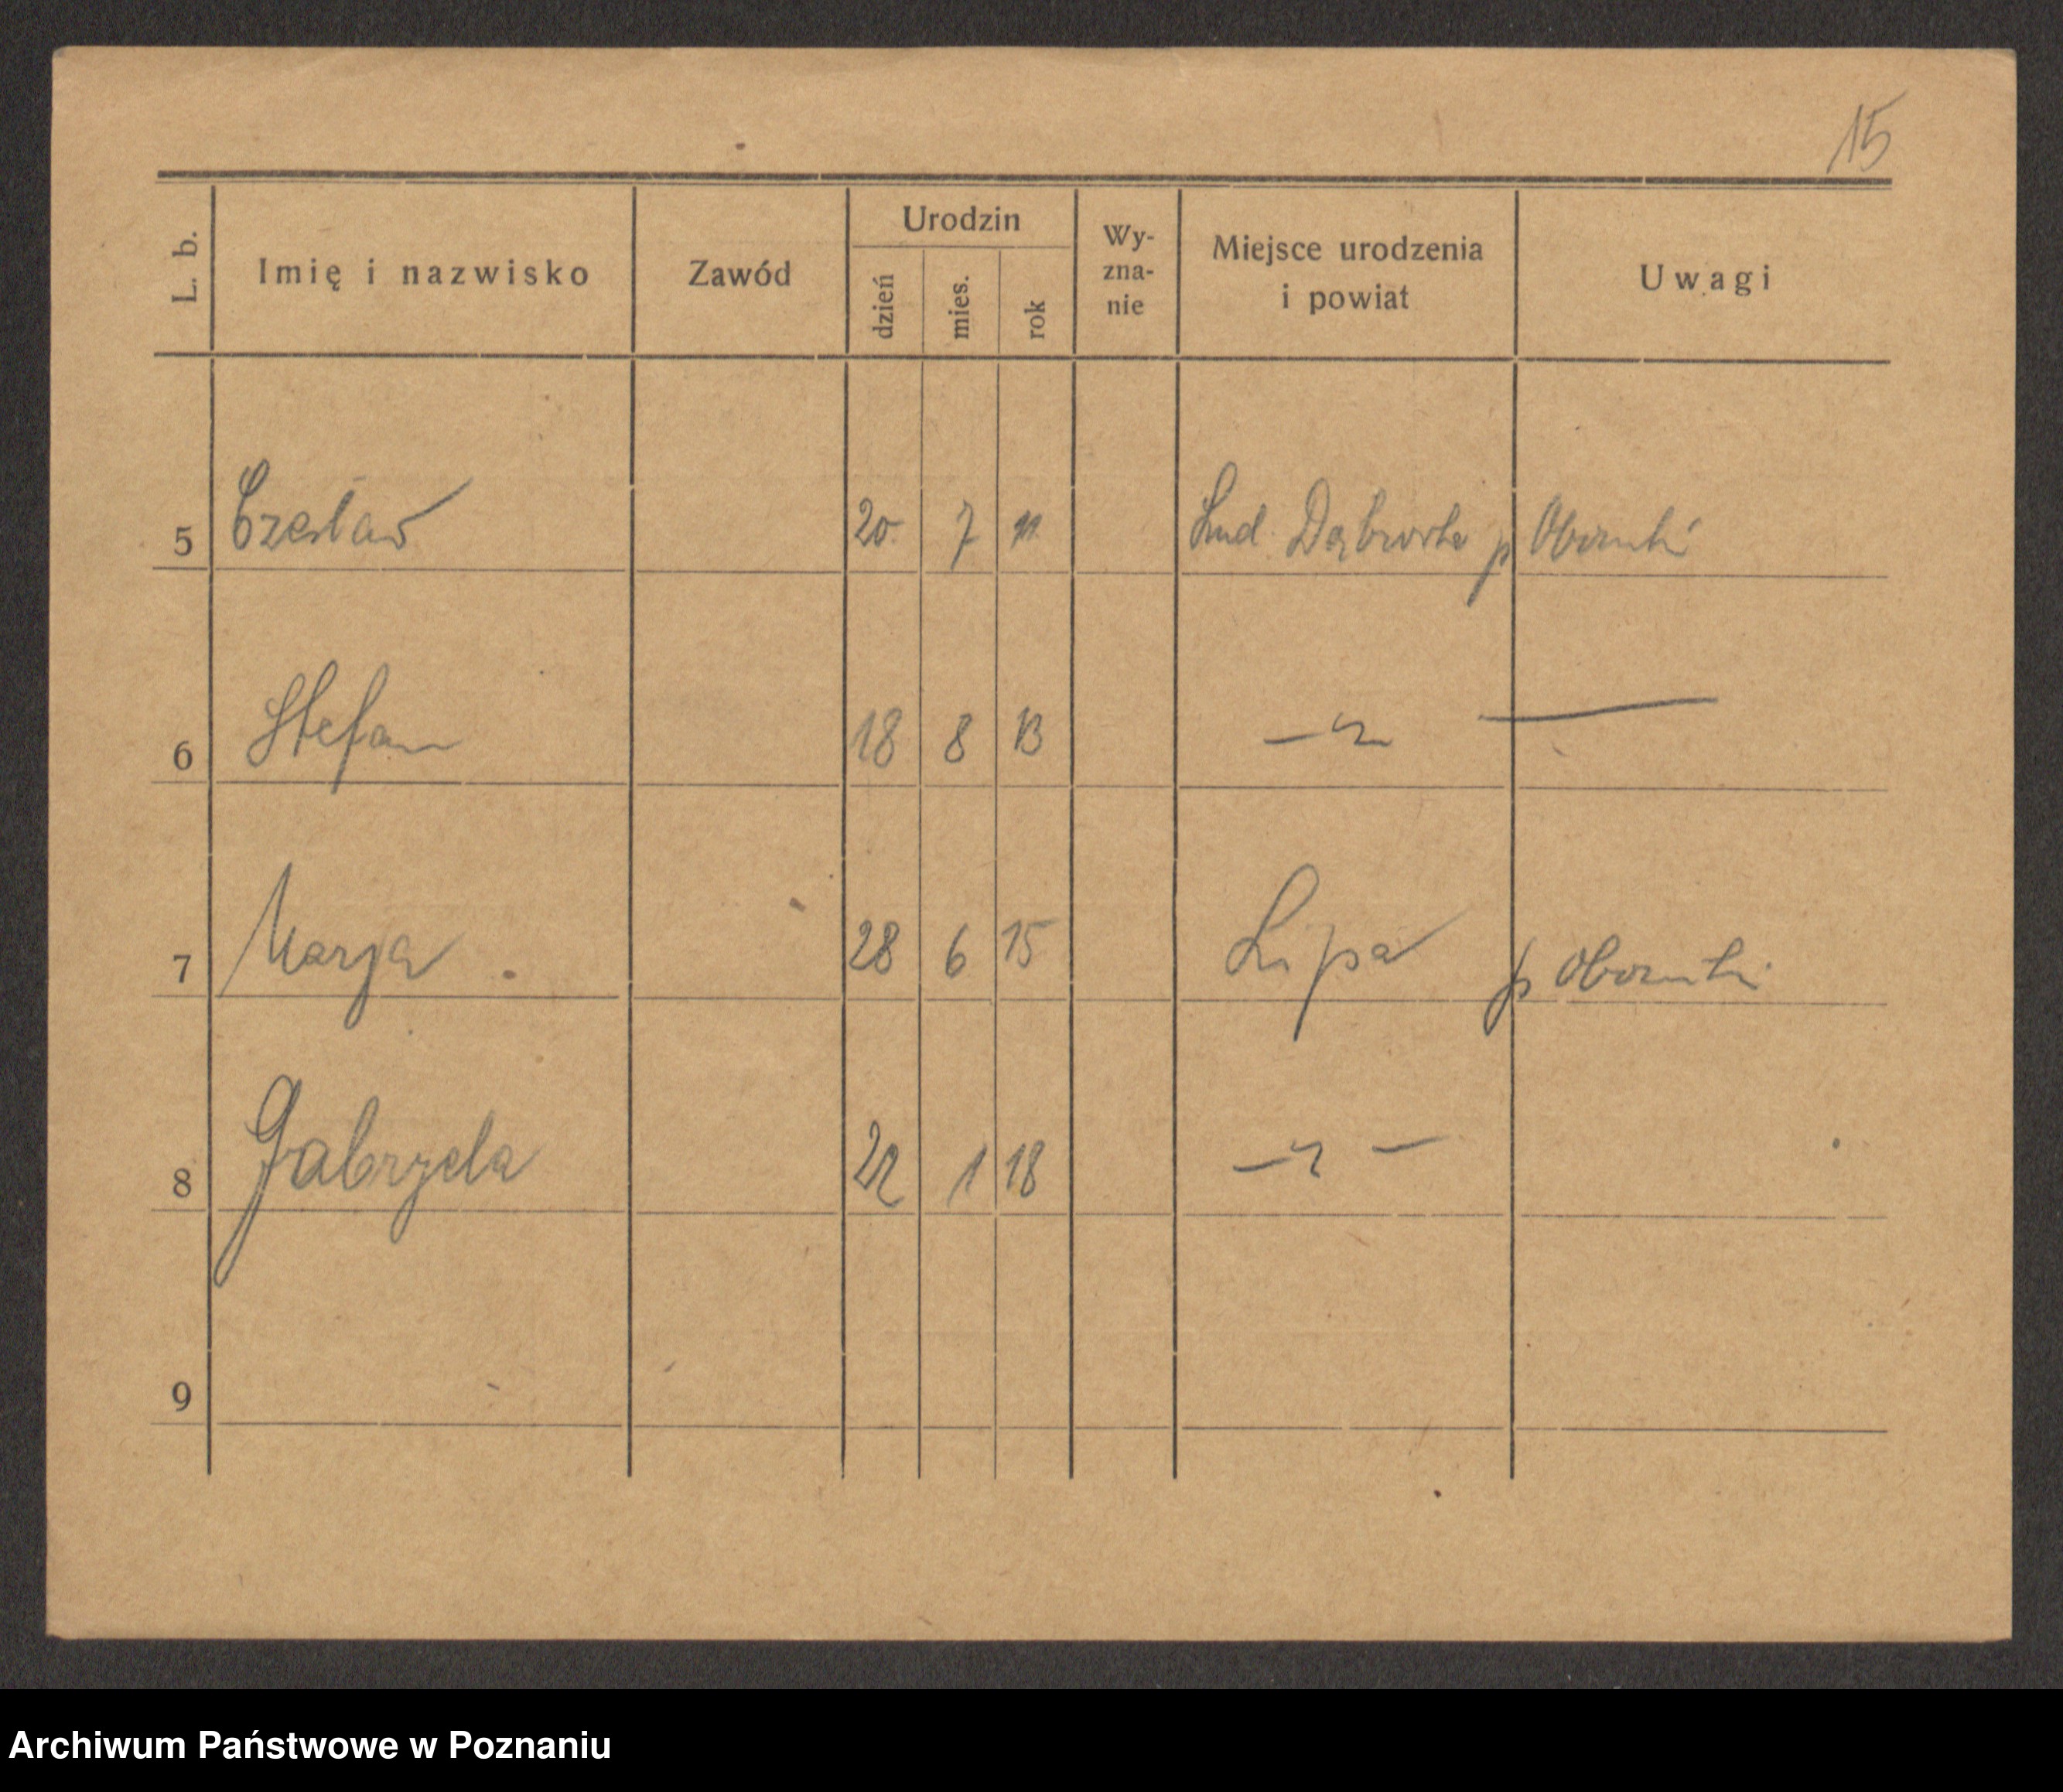 15
L. b. Imię i nazwisko Zawód Urodzin dzień mies. rok Wy-
zna-
nie Miejsce urodzenia
i powiat Uwagi
5 Czesław 20 7 11 Dąbrówka p Oborniki
6 Stefan 18 8 13 — " —
7 Marja 28 6 15 Lipa p Oborniki
8 Gabryela 22 1 18 — " —
9
Archiwum Państwowe w Poznaniu